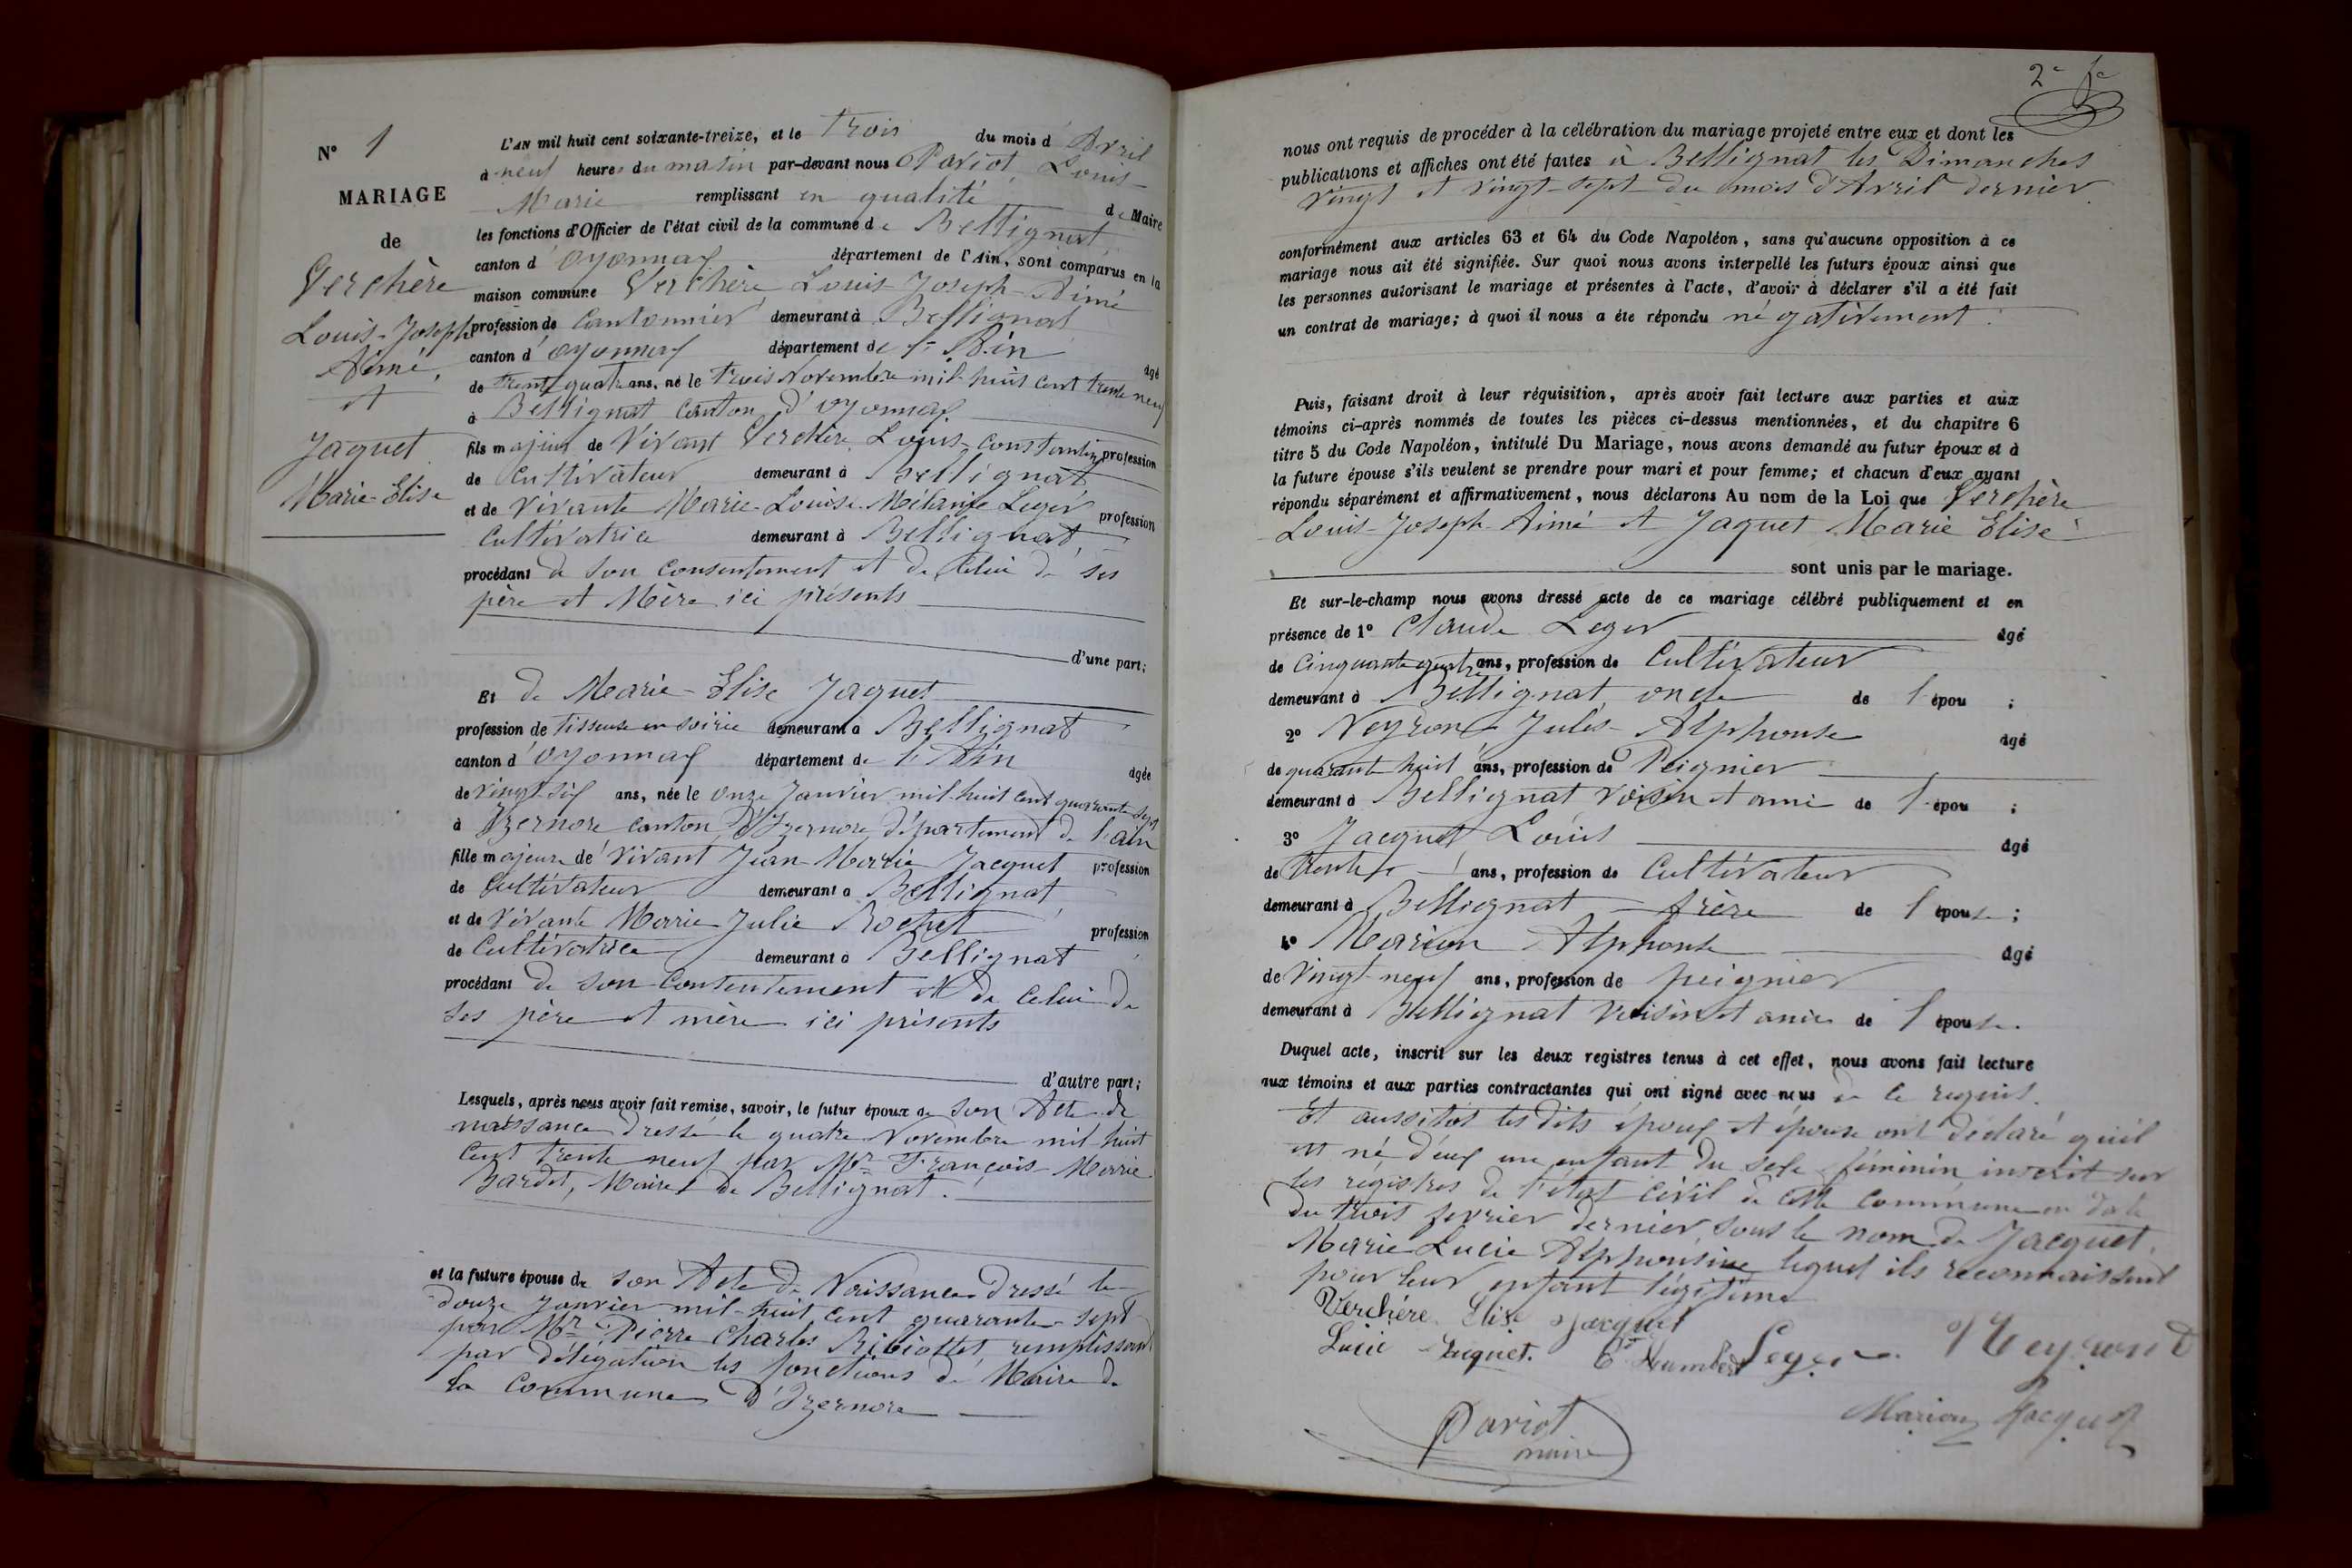 N° 1
MARIAGE
de
Verchère
Louis-Joseph
Aimé,
et
Jaquet
Marie-Elise
L'AN mil huit cent soixante-treize, et le trois du mois d'Avril
à neuf heures du matin par-devant nous Pariot, Louis-
Marie remplissant en qualité de Maire
les fonctions d'Officier de l'état civil de la commune de Bellignat
canton d'Oyonnax département de l'Ain, sont comparus en la
maison commune Verchère Louis-Joseph-Aimé
profession de Cantonnier demeurant à Bellignat
canton d'Oyonnax département de l'Ain âgé
de trente quatre ans, né le trois Novembre mil-huit cent trente neuf
à Bellignat Canton d'Oyonnax
fils majeur de Vivant Verchère Louis-Constantin profession
de Cultivateur demeurant à Bellignat
et de Vivante Marie-Louise-Mélanie Leger profession
Cultivatrice demeurant à Bellignat,
procédant de son consentement et de celui de ses
père et Mère ici présents
d'une part;
Et de Marie-Elise Jaquet
profession de tisseuse en soirie demeurant à Bellignat
canton d'Oyonnax département de l'Ain âgée
de vingt-six ans, née le onze Janvier mil-huit cent quarante sept
à Izernore canton d'Izernore département de l'ain
fille majeure de Vivant Jean-Marie Jacquet profession
de Cultivateur demeurant à Bellignat
et de Vivante Marie Julie Rochet profession
de Cultivatrice demeurant à Bellignat
procédant de son consentement et de celui de
ses père et mère ici présents
d'autre part;
Lesquels, après nous avoir fait remise, savoir, le futur époux de son Acte de
naissance dressé le quatre Novembre mil huit
cent trente neuf par Mr François-Marie
Bardet, Maire de Bellignat.
et la future épouse de son Acte de Naissance dressé le
douze Janvier mil-huit cent quarante-sept
par Mr Pierre Charles remplissant
par délégation les fonctions de Maire de
la Commune d'Izernore
2e
nous ont requis de procéder à la célébration du mariage projeté entre eux et dont les
publications et affiches ont été faites à Bellignat les Dimanches
vingt et vingt-sept du mois d'Avril dernier
conformément aux articles 63 et 64 du Code Napoléon, sans qu'aucune opposition à ce
mariage nous ait été signifiée. Sur quoi nous avons interpellé les futurs époux ainsi que
les personnes autorisant le mariage et présentes à l'acte, d'avoir à déclarer s'il a été fait
un contrat de mariage; à quoi il nous a été répondu négativement.
Puis, faisant droit à leur réquisition, après avoir fait lecture aux parties et aux
témoins ci-après nommés de toutes les pièces ci-dessus mentionnées, et du chapitre 6
titre 5 du Code Napoléon, intitulé Du Mariage, nous avons demandé au futur époux et à
la future épouse s'ils veulent se prendre pour mari et pour femme; et chacun d'eux ayant
répondu séparément et affirmativement, nous déclarons Au nom de la Loi que Verchère
Louis-Joseph-Aimé et Jaquet Marie Elise
sont unis par le mariage.
Et sur-le-champ nous avons dressé acte de ce mariage célébré publiquement et en
présence de 1° Claude Leger âgé
de Cinquante quatre ans, profession de Cultivateur
demeurant à Bellignat oncle de l'épou ;
2° Neyrond Jules-Alphonse âgé
de quarante huit ans, profession de Peignier
demeurant à Bellignat voisin et ami de l'épou ;
3° Jacquet Louis âgé
de trente ans, profession de Cultivateur
demeurant à Bellignat frère de l'épouse;
4° Marion Alphonse âgé
de vingt-neuf ans, profession de peignier
demeurant à Bellignat voisin et ami de l'épouse.
Duquel acte, inscrit sur les deux registres tenus à cet effet, nous avons fait lecture
aux témoins et aux parties contractantes qui ont signé avec nous de ce requis.
Et aussitôt les dits époux et épouse ont déclaré qu'il
est né d'eux une enfant du sexe féminin inscrit sur
les régistres de l'état civil de cette commune en date
du trois fevrier dernier, sous le nom de Jacquet,
Marie Lucie Alphonsine lequel ils reconnaissent
pour leur enfant légitime
Verchère Elise Jacquet
Lucie Jaquet. Humbert Leger Neyrond
Pariot
maire
Marion Jacquet